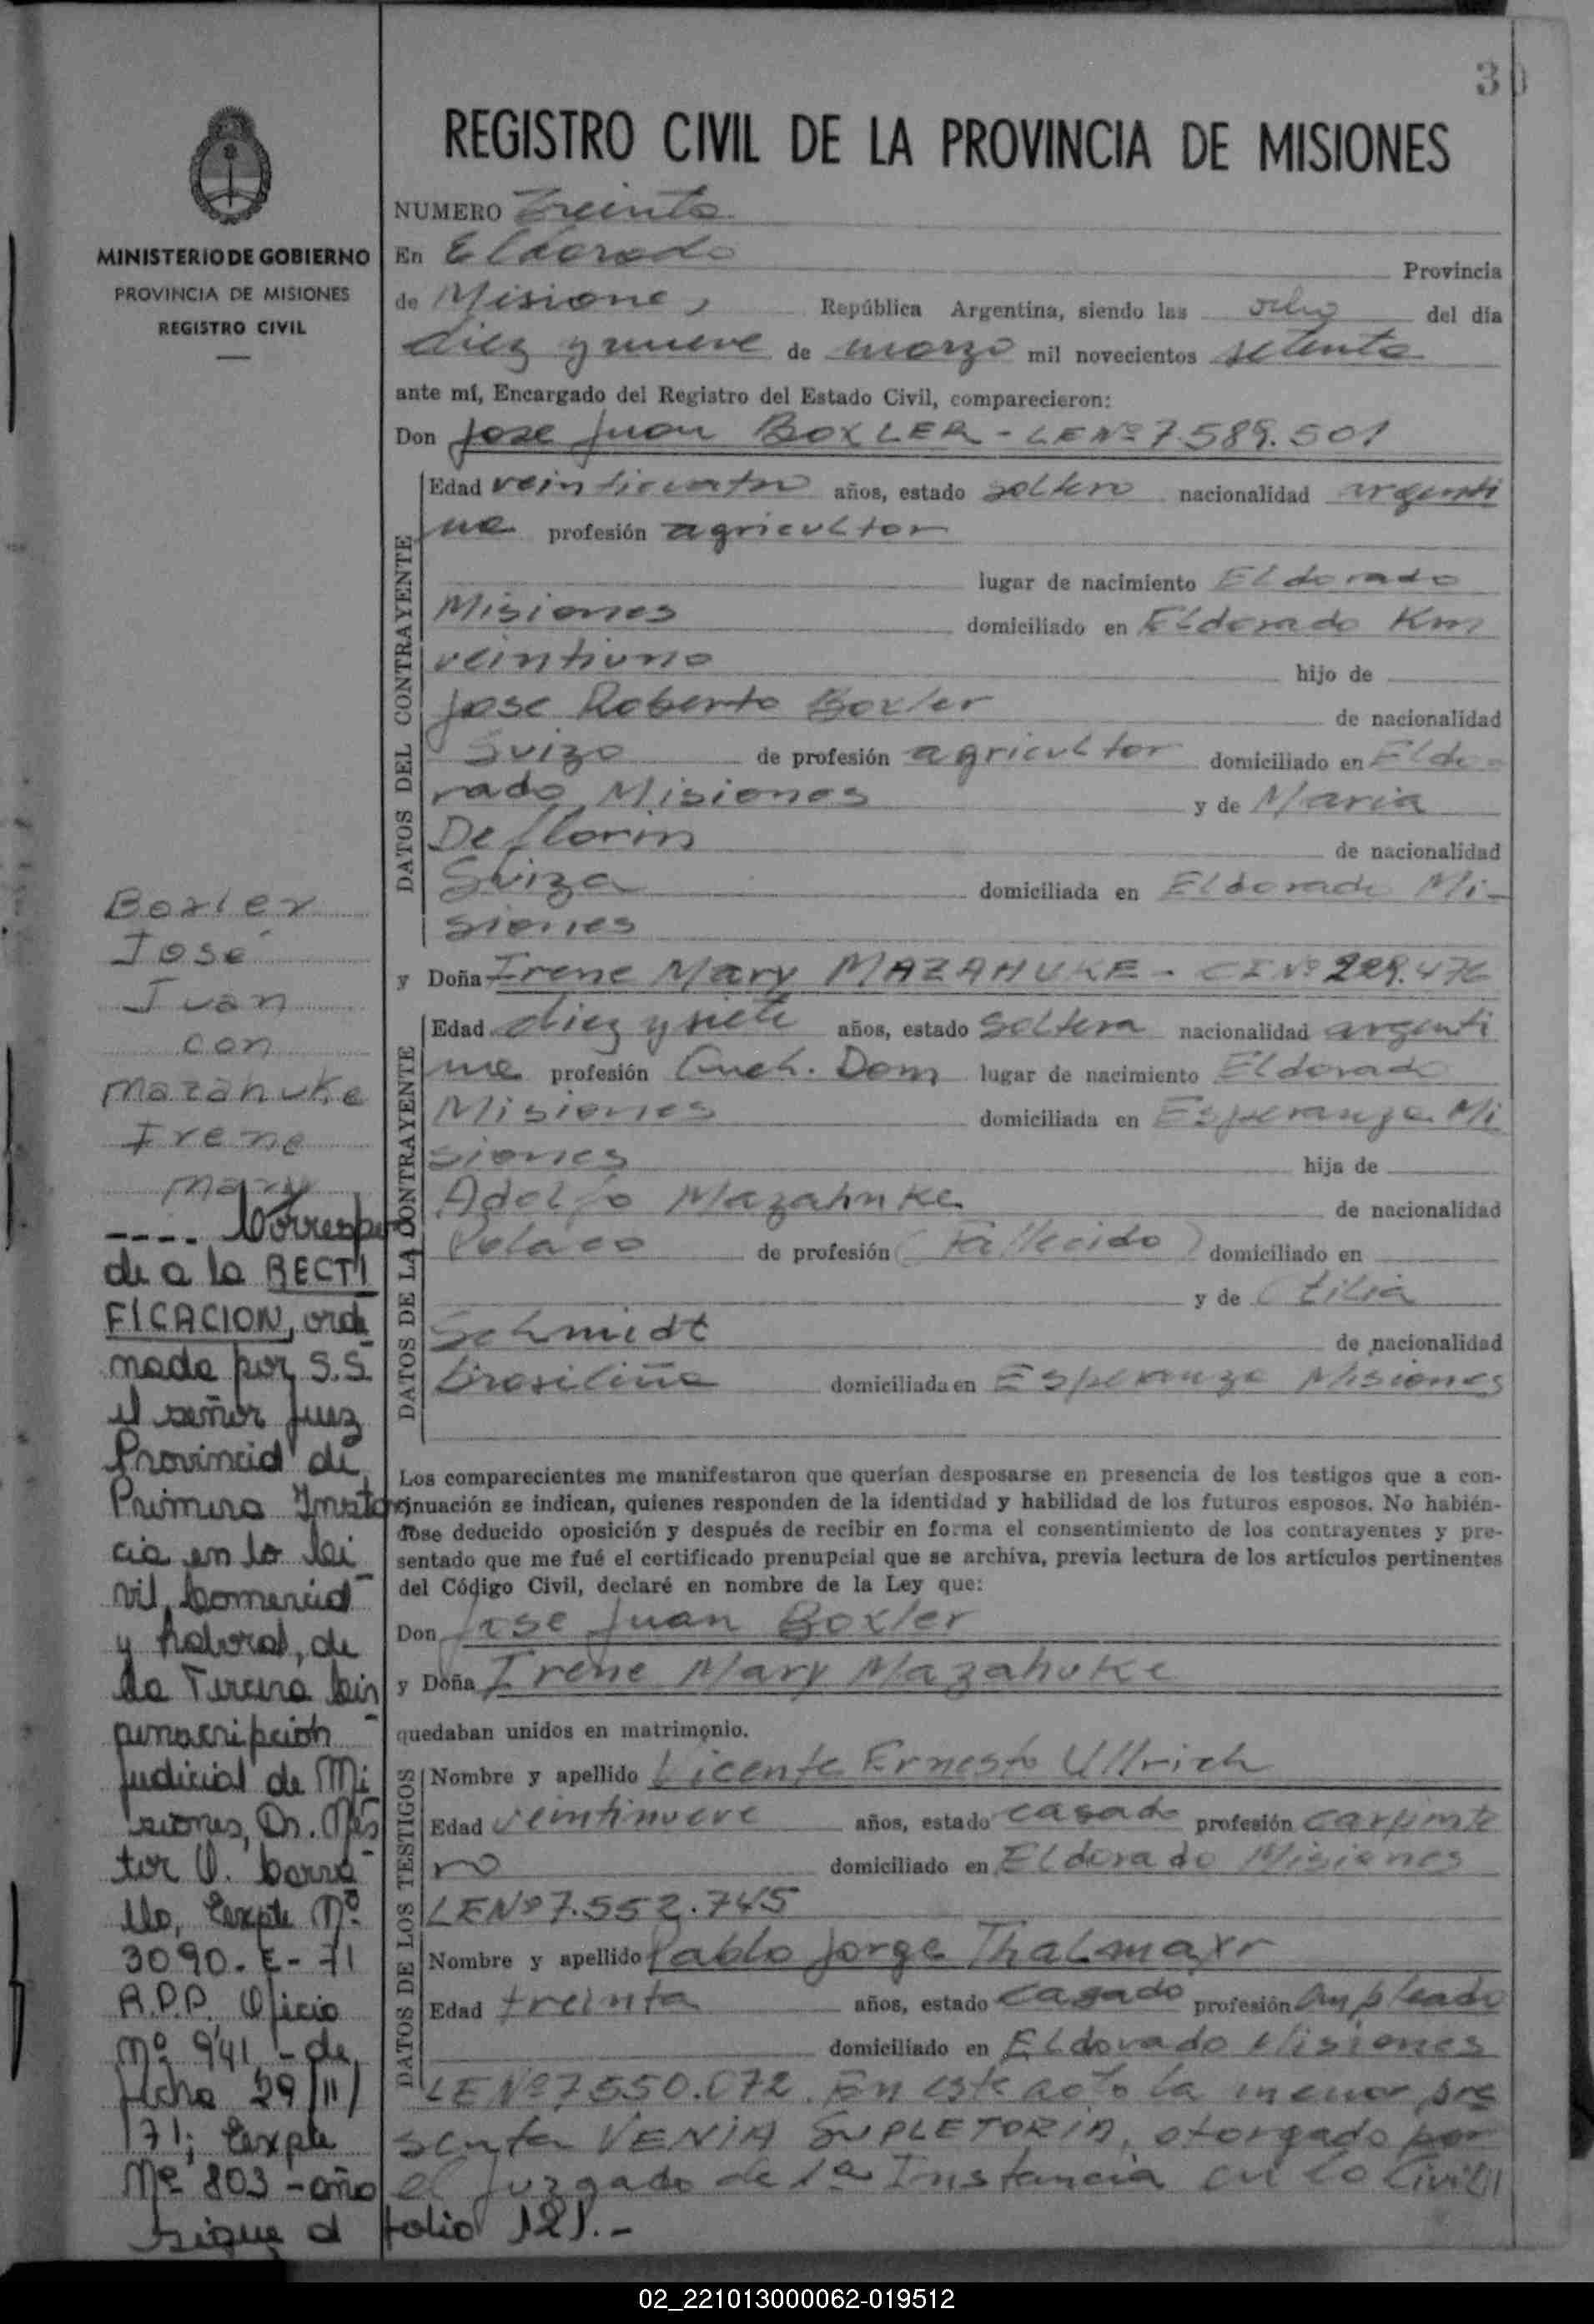 30
REGISTRO CIVIL DE LA PROVINCIA DE MISIONES
MINISTERIO DE GOBIERNO
PROVINCIA DE MISIONES
REGISTRO CIVIL
NUMERO Treinta
En Eldorado Provincia
de Misiones República Argentina, siendo las ocho del día
diez y nueve de marzo mil novecientos setenta
ante mí, Encargado del Registro del Estado Civil, comparecieron:
Don Jose Juan BOXLER - LE Nº 7.589.501
DATOS DEL CONTRAYENTE
Edad veinticuatro años, estado soltero nacionalidad argenti
na profesión agricultor
lugar de nacimiento Eldorado
Misiones domiciliado en Eldorado Km
veintiuno hijo de
Jose Roberto Boxler de nacionalidad
Suizo de profesión agricultor domiciliado en Eldo-
rado Misiones y de Maria
Deflorin de nacionalidad
Suiza domiciliada en Eldorado Mi-
siones
y Doña Irene Mary MAZAHUKE - CI Nº 229.476
DATOS DE LA CONTRAYENTE
Edad diez y siete años, estado soltera nacionalidad argenti
na profesión Queh. Dom lugar de nacimiento Eldorado
Misiones domiciliada en Esperanza Mi
siones hija de
Adolfo Mazahuke de nacionalidad
Polaco de profesión (Fallecido) domiciliado en
y de Otilia
Schmidt de nacionalidad
brasileña domiciliada en Esperanza Misiones
Los comparecientes me manifestaron que querían desposarse en presencia de los testigos que a con-
tinuación se indican, quienes responden de la identidad y habilidad de los futuros esposos. No habién-
dose deducido oposición y después de recibir en forma el consentimiento de los contrayentes y pre-
sentado que me fué el certificado prenupcial que se archiva, previa lectura de los artículos pertinentes
del Código Civil, declaré en nombre de la Ley que:
Don Jose Juan Boxler
y Doña Irene Mary Mazahuke
quedaban unidos en matrimonio.
DATOS DE LOS TESTIGOS
Nombre y apellido Vicente Ernesto Ullrich
Edad veintinueve años, estado casado profesión carpinte
ro domiciliado en Eldorado Misiones
LE Nº 7.552.745
Nombre y apellido Pablo Jorge Thalmayr
Edad treinta años, estado casado profesión empleado
domiciliado en Eldorado Misiones
LE Nº 7550.072. En este acto la menor pre
senta VENIA SUPLETORIA, otorgado por
el Juzgado de 1ª Instancia en lo Civil
Boxler
José
Juan
con
Mazahuke
Irene
Mary
---- Correspon
de a la RECTI
FICACION, orde
nada por S.S.
el señor Juez
Provincial de
Primera Instan
cia en lo Ci
vil, Comercial
y Laboral, de
la Tercera Cir
cunscripción
Judicial de Mi
siones, Dr. Nés
tor O.
llo, Expte Nº
3090.E-71
A.P.P. Oficio
Nº 941.- de
fecha 29/11/
71; Expte
Nº 803 - año
sigue al folio 121.-
02_221013000062-019512